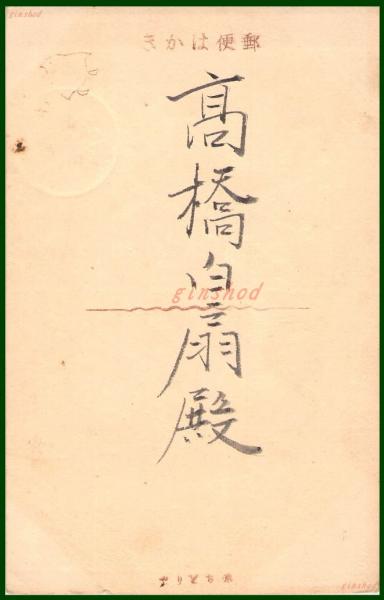 ginshod
郵便はかき
高橋白扇殿
ginshod
ginshod